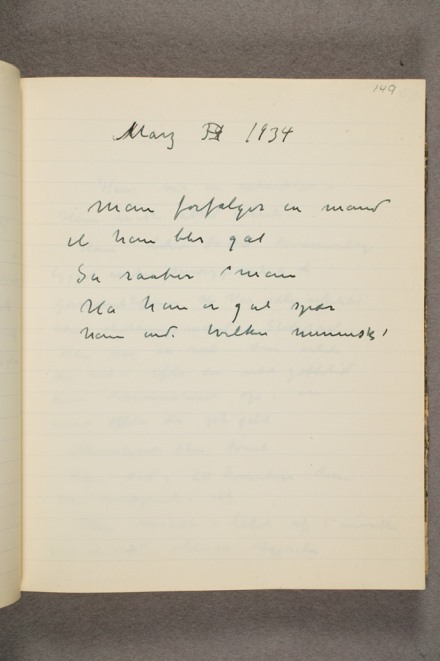 149
Marz 1934
Man forfølger en mand
til han blir gal
Så raaber man
Ha han er gal spær
ham ind. hvilken menneske